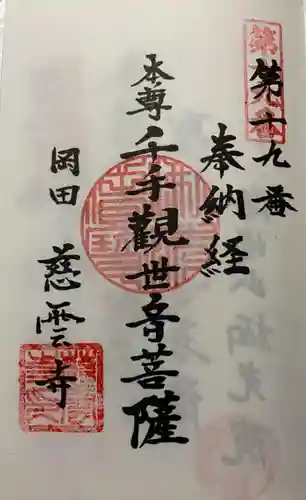 第十九番
奉納経
本尊
千手觀世音菩薩
岡田
慈雲寺